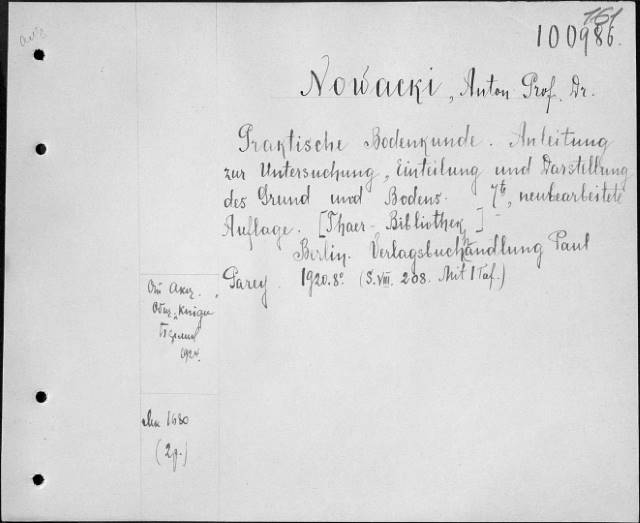 161
100986.
Nowacki, Anton Prof. Dr.
Praktische Bodenkunde. Anleitung
zur Untersuchung, Einteilung und Darstellung
des Grund und Bodens. 7te, neubearbeitete
Auflage. [Thaer-Bibliothek]
Berlin. Verlagsbuchhandlung Paul
Parey. 1920. 8° (S. VIII. 208. Mit 1 Taf.)
От Акц.
Общ. „Книга
1924.
1680
(2р.)